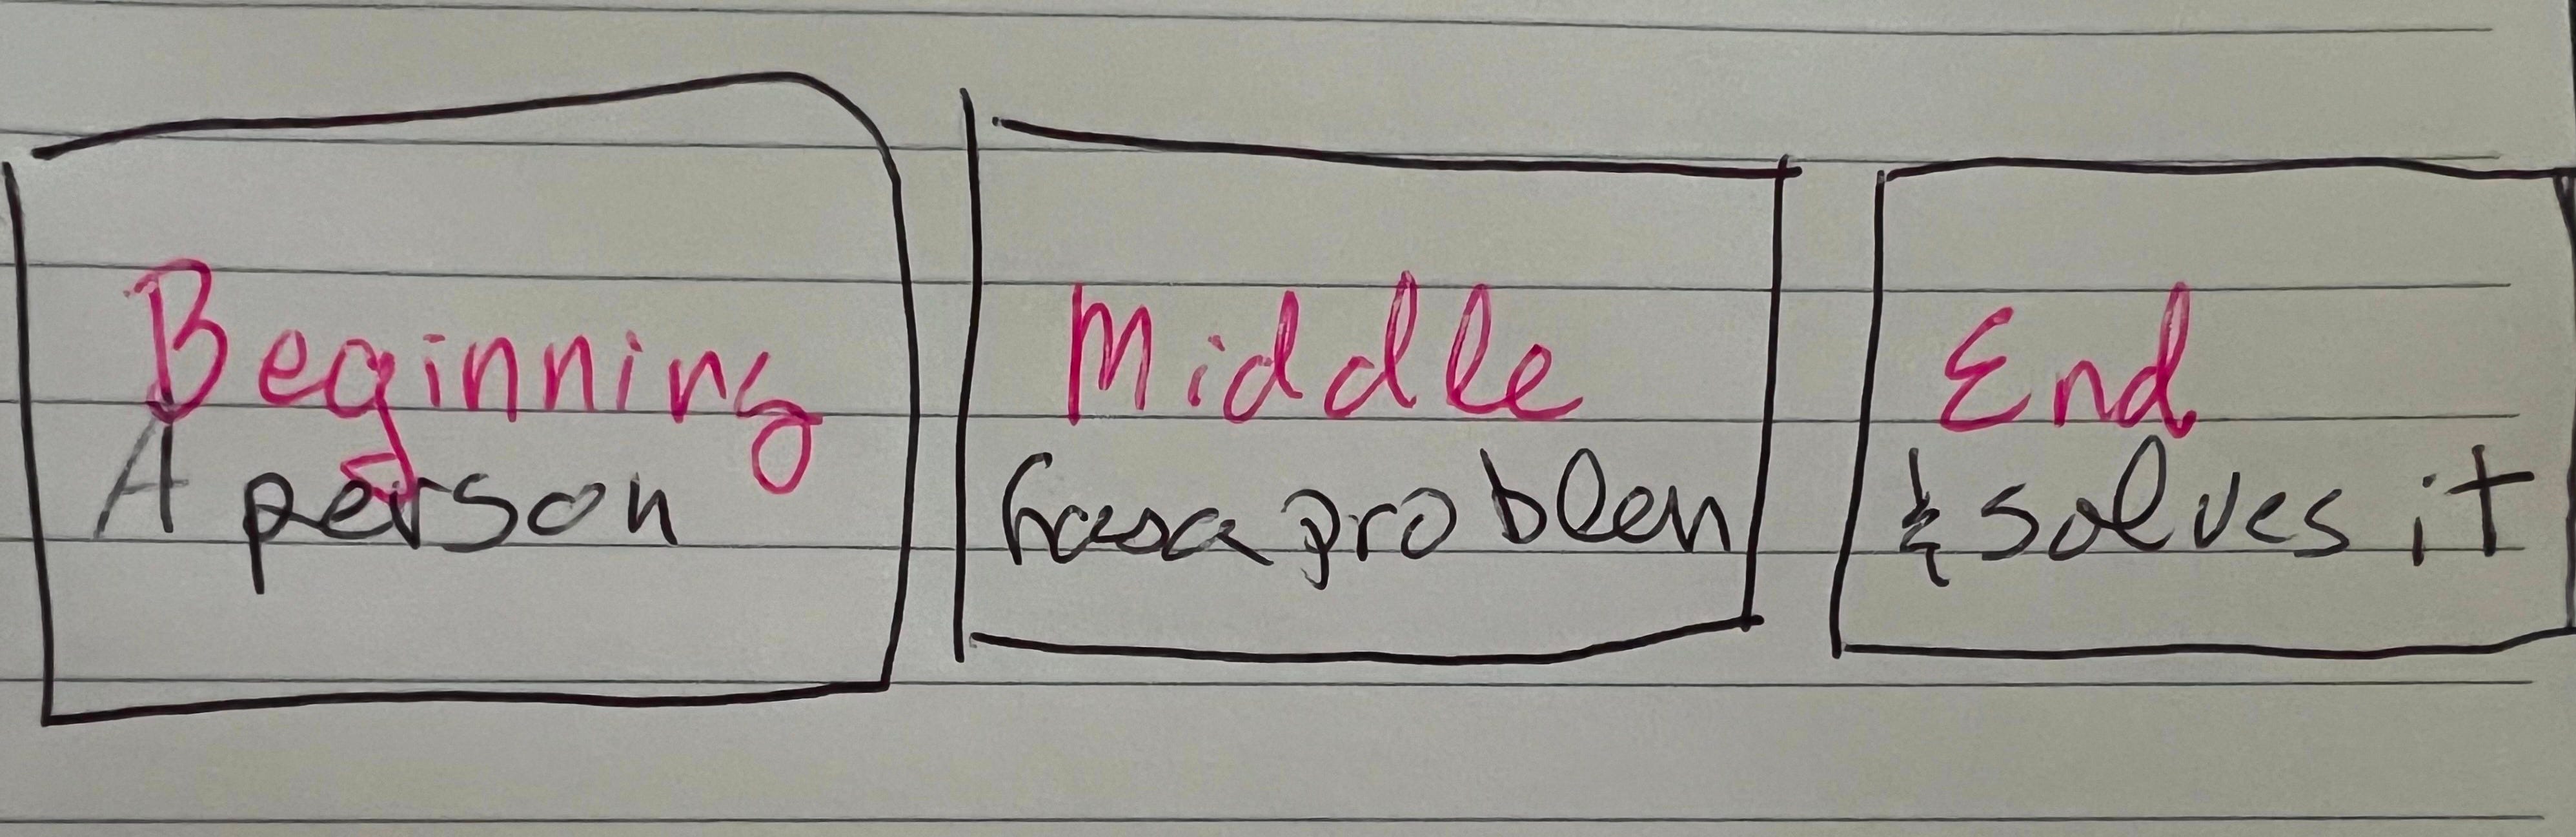 Beginning
A person
Middle
has a problem
End
& solves it